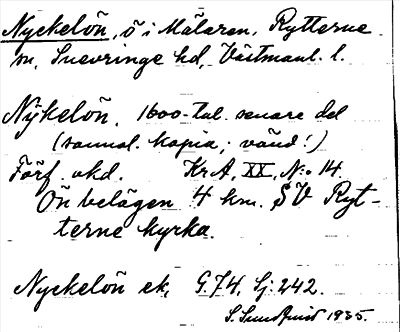 Nyckelön, ö i Mälaren, Rytterne
sn, Snevringe hd, Västmanl. l.
Nÿkelön, 1600-tal. senare del
(samml. kopia; vänd!)
Förf. okd. KrA, XX, N:o 14.
Ön belägen 4 km. SV Ryt-
terne kyrka.
Nyckelön ek. G. 74, Sj: 242.
S. Sundquist 1935.